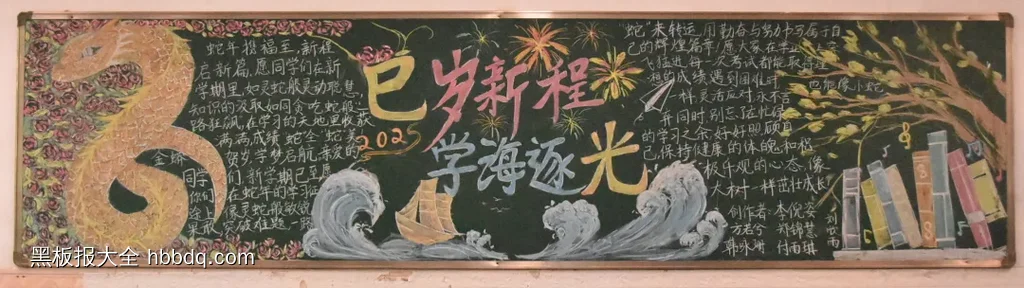 蛇年携福至,新程
启新篇,愿同学们在新
学期里,如灵蛇般灵动聪慧,
知识的汲取如同贪吃蛇般一
路狂飙,在学习的天地里收获
两两成绩"蛇"全"蛇"美
贺岁 学梦启航,亲爱的
金蛇
同学们,新学期已至愿
你们在蛇年的学习征
途上像灵蛇般敏锐
果敢,突破难题,一路
巳岁新程
2025
学海逐光
"蛇"来转运,用勤奋与努力书写属于自
己的辉煌篇章!愿大家在学业上
飞猛进,每一次考试都能取得理
想的成绩,遇到困难时
也能像小蛇
一样灵活应对,永不言
弃同时,别忘记忙碌
的学习之余好好照顾自
己,保持健康的体魄和积
极乐观的心态,像
大树一样茁壮成长
创作者:李倪姿
方若兮 郑锦慧
韩冰琳 付雨琪
刘世雨
黑板报大全 hbbdq.com